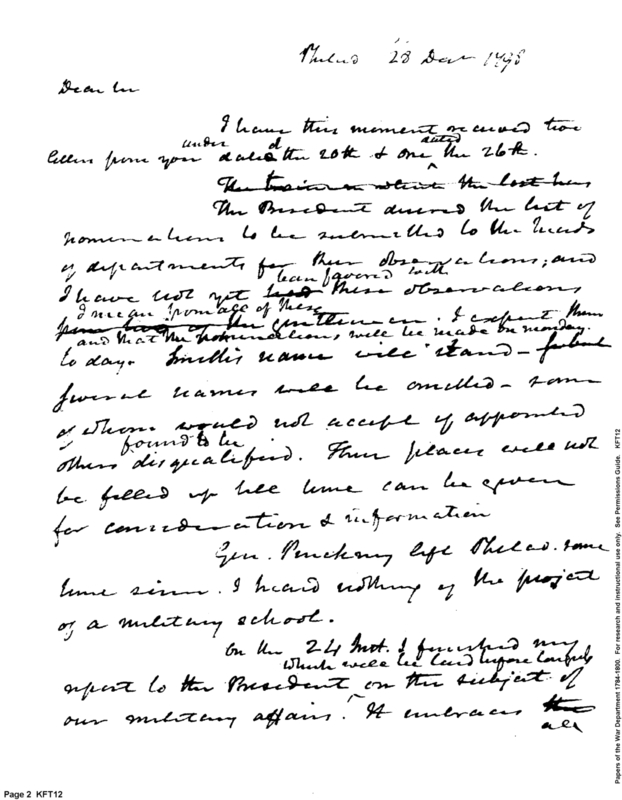 Philad 28 Decr 1798
Dear Sir
I have this moment received two
letters from you under dated the 20th & one dated the 26th.
The train in which the last has
The President desired the list of
nominations to be submitted to the heads
of departments for their observations; and
I have not yet had been favored with these observations
I mean from all of these
gentlemen. I expect them
and that the nominations will be made on monday.
to day. Smith's name will stand - but
several names will be omitted - some
of whom would not accept if appointed
others found to be disqualified. Their places will not
be filled up till time can be given
for consideration & information
Gen. Pinckney left Philad. some
time since. I heard nothing of the project
of a military school.
On the 24 Inst. I finished my
which will be laid before Congress
report to the President on the subject of
our military affairs. It embraces the
all
Page 2 KFT12
Papers of the War Department 1784-1800. For research and instructional use only. See Permissions Guide. KFT12